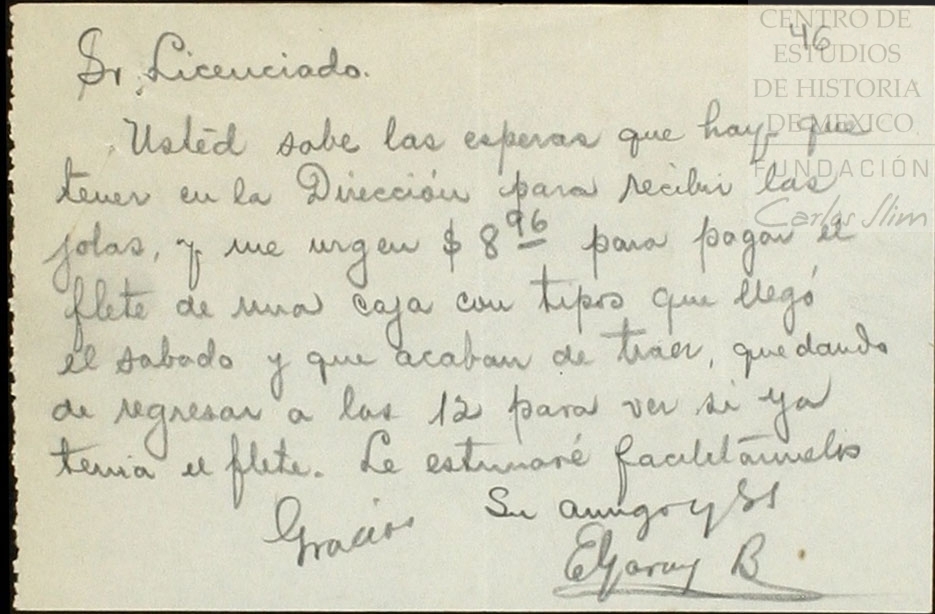 46
CENTRO DE
ESTUDIOS
DE HISTORIA
DE MEXICO
FUNDACIÓN
Carlos Slim
Sr. Licenciado.
Usted sabe las esperas que hay que
tener en la Dirección para recibir las
jolas, y me urgen $ 8 96 para pagar el
flete de una caja con tipos que llegó
el sabado y que acaban de traer, quedando
de regresar a las 12 para ver si ya
tenia el flete. Le estimaré facilitármelos
Gracias
Su amigo y SS
EGaray B